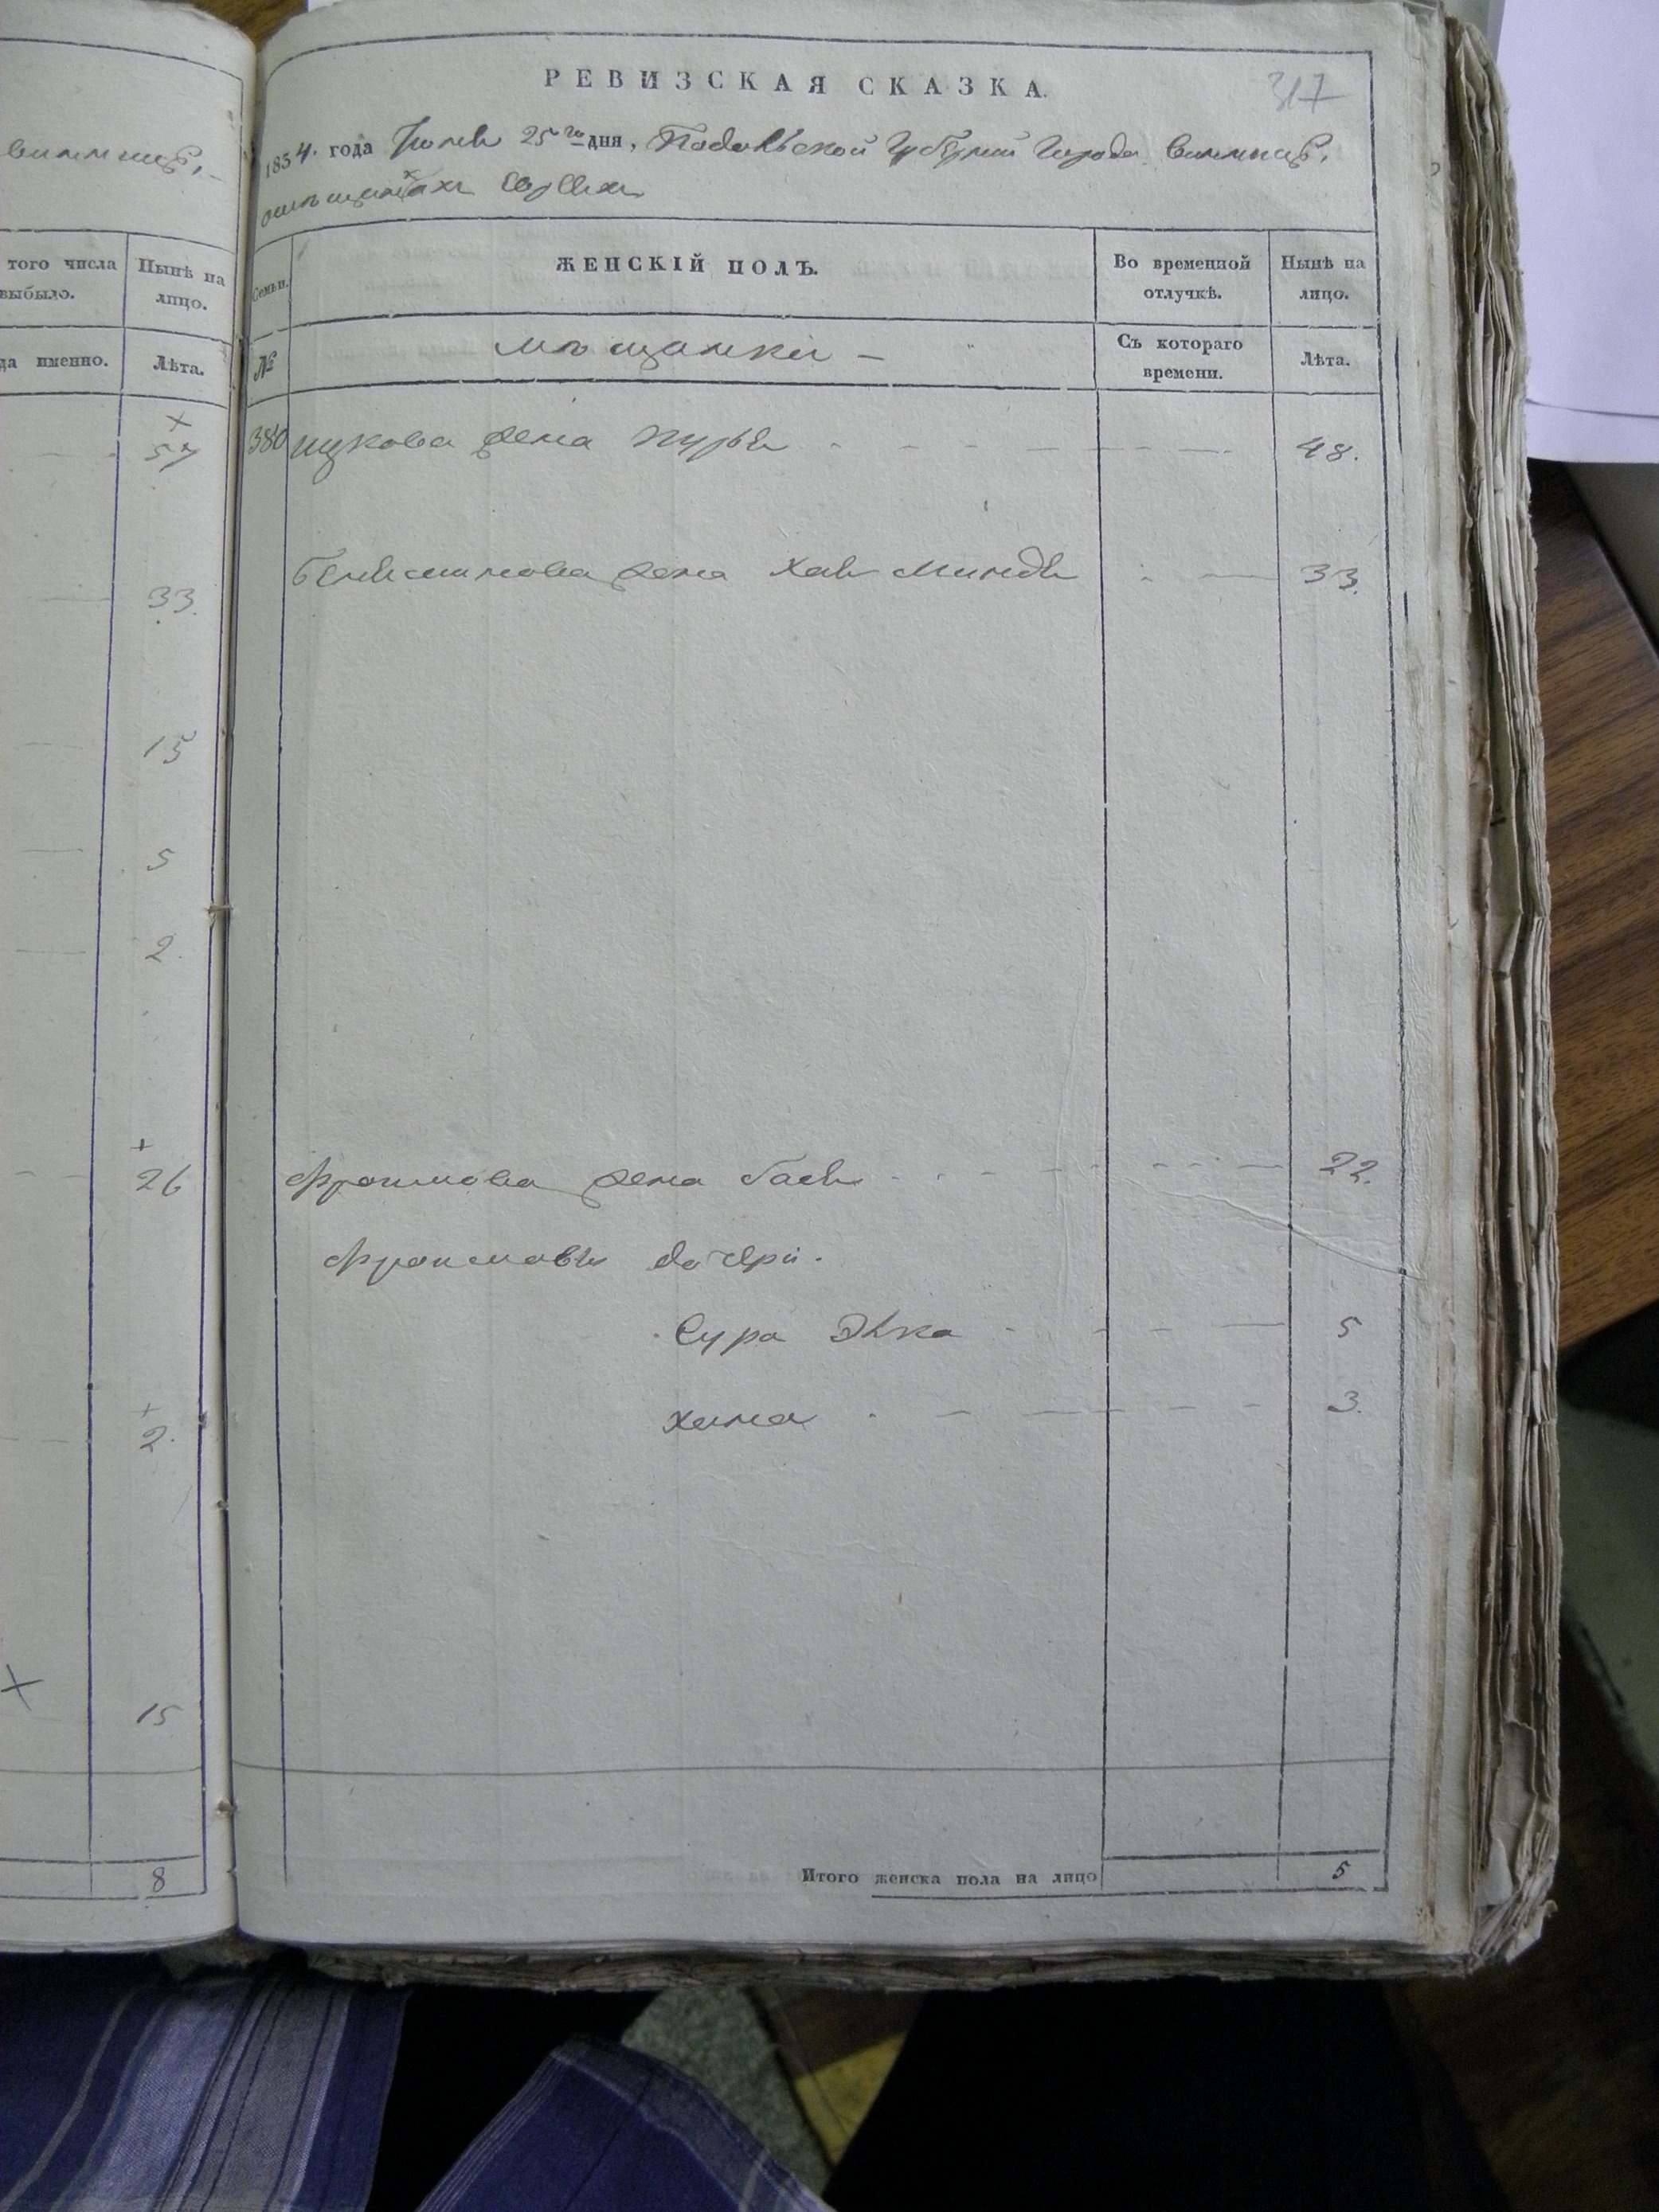 виннице,
того числа
выбыло.
Нынѣ на
лицо.
да именно.
Лѣта.
57
33.
15
5
2
26
2.
15
8
РЕВИЗСКАЯ СКАЗКА
317
1854. года Июля 25го дня, Подольской Губернии Города Винницы,
о мещанахъ Евреяхъ
Семьи.
ЖЕНСКІЙ ПОЛЪ.
Во временной
отлучкѣ.
Нынѣ на
лицо.
№
мѣщанки —
Съ котораго
времени.
Лѣта.
380 Ицкова жена Пурля 48.
жена Хая Миндля 33.
Фроимова жена Бася 22.
Фроимовы дочери.
Сура Элка 5
Хана 3.
Итого женска пола на лицо 5